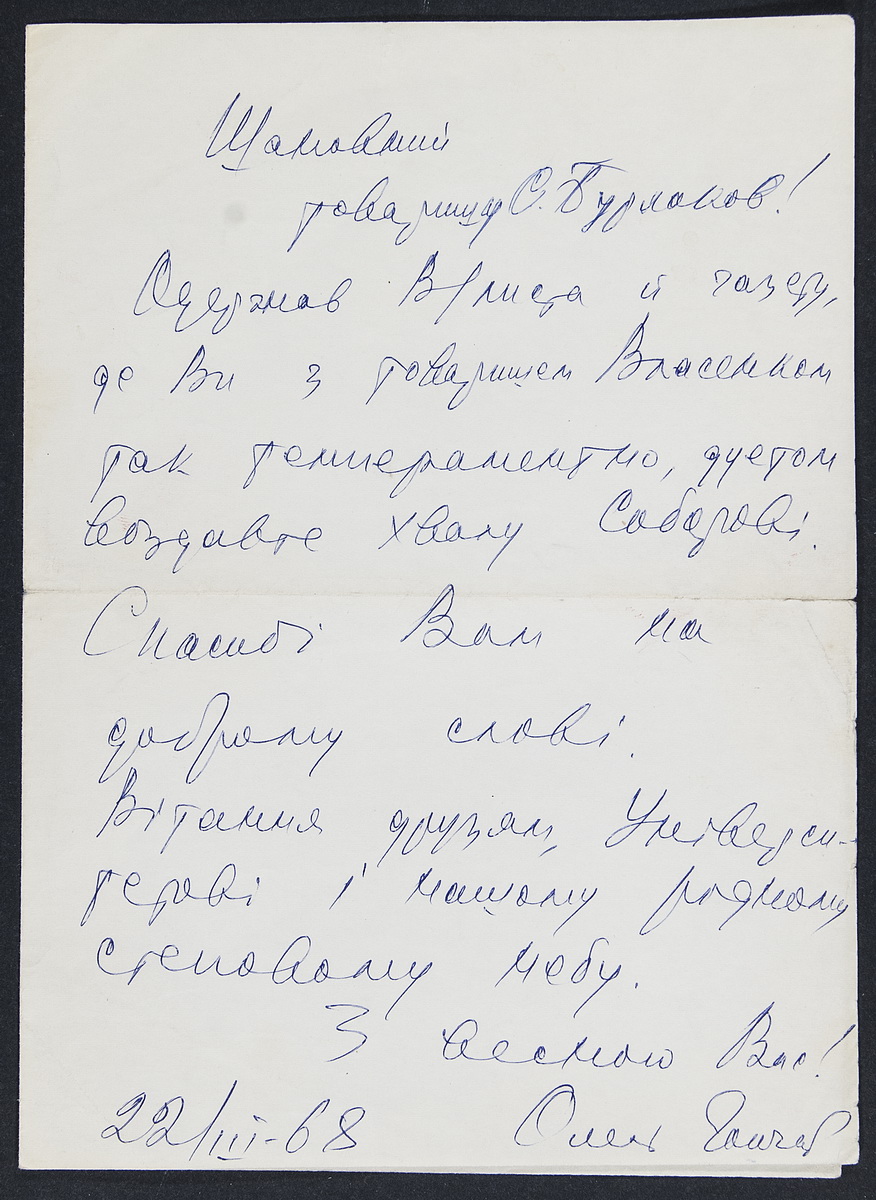 Шановний
товаришу С. Бурлаков!
Одержав В/листа й газету,
де Ви з товаришем Власенком
так темпераментно, дуетом
воздаєте хвалу Соборові.
Спасибі Вам на
доброму слові.
Вітання друзям, Універси-
тетові і нашому рідному
степовому небу.
З весною Вас!
22/III-68 Олесь Гончар